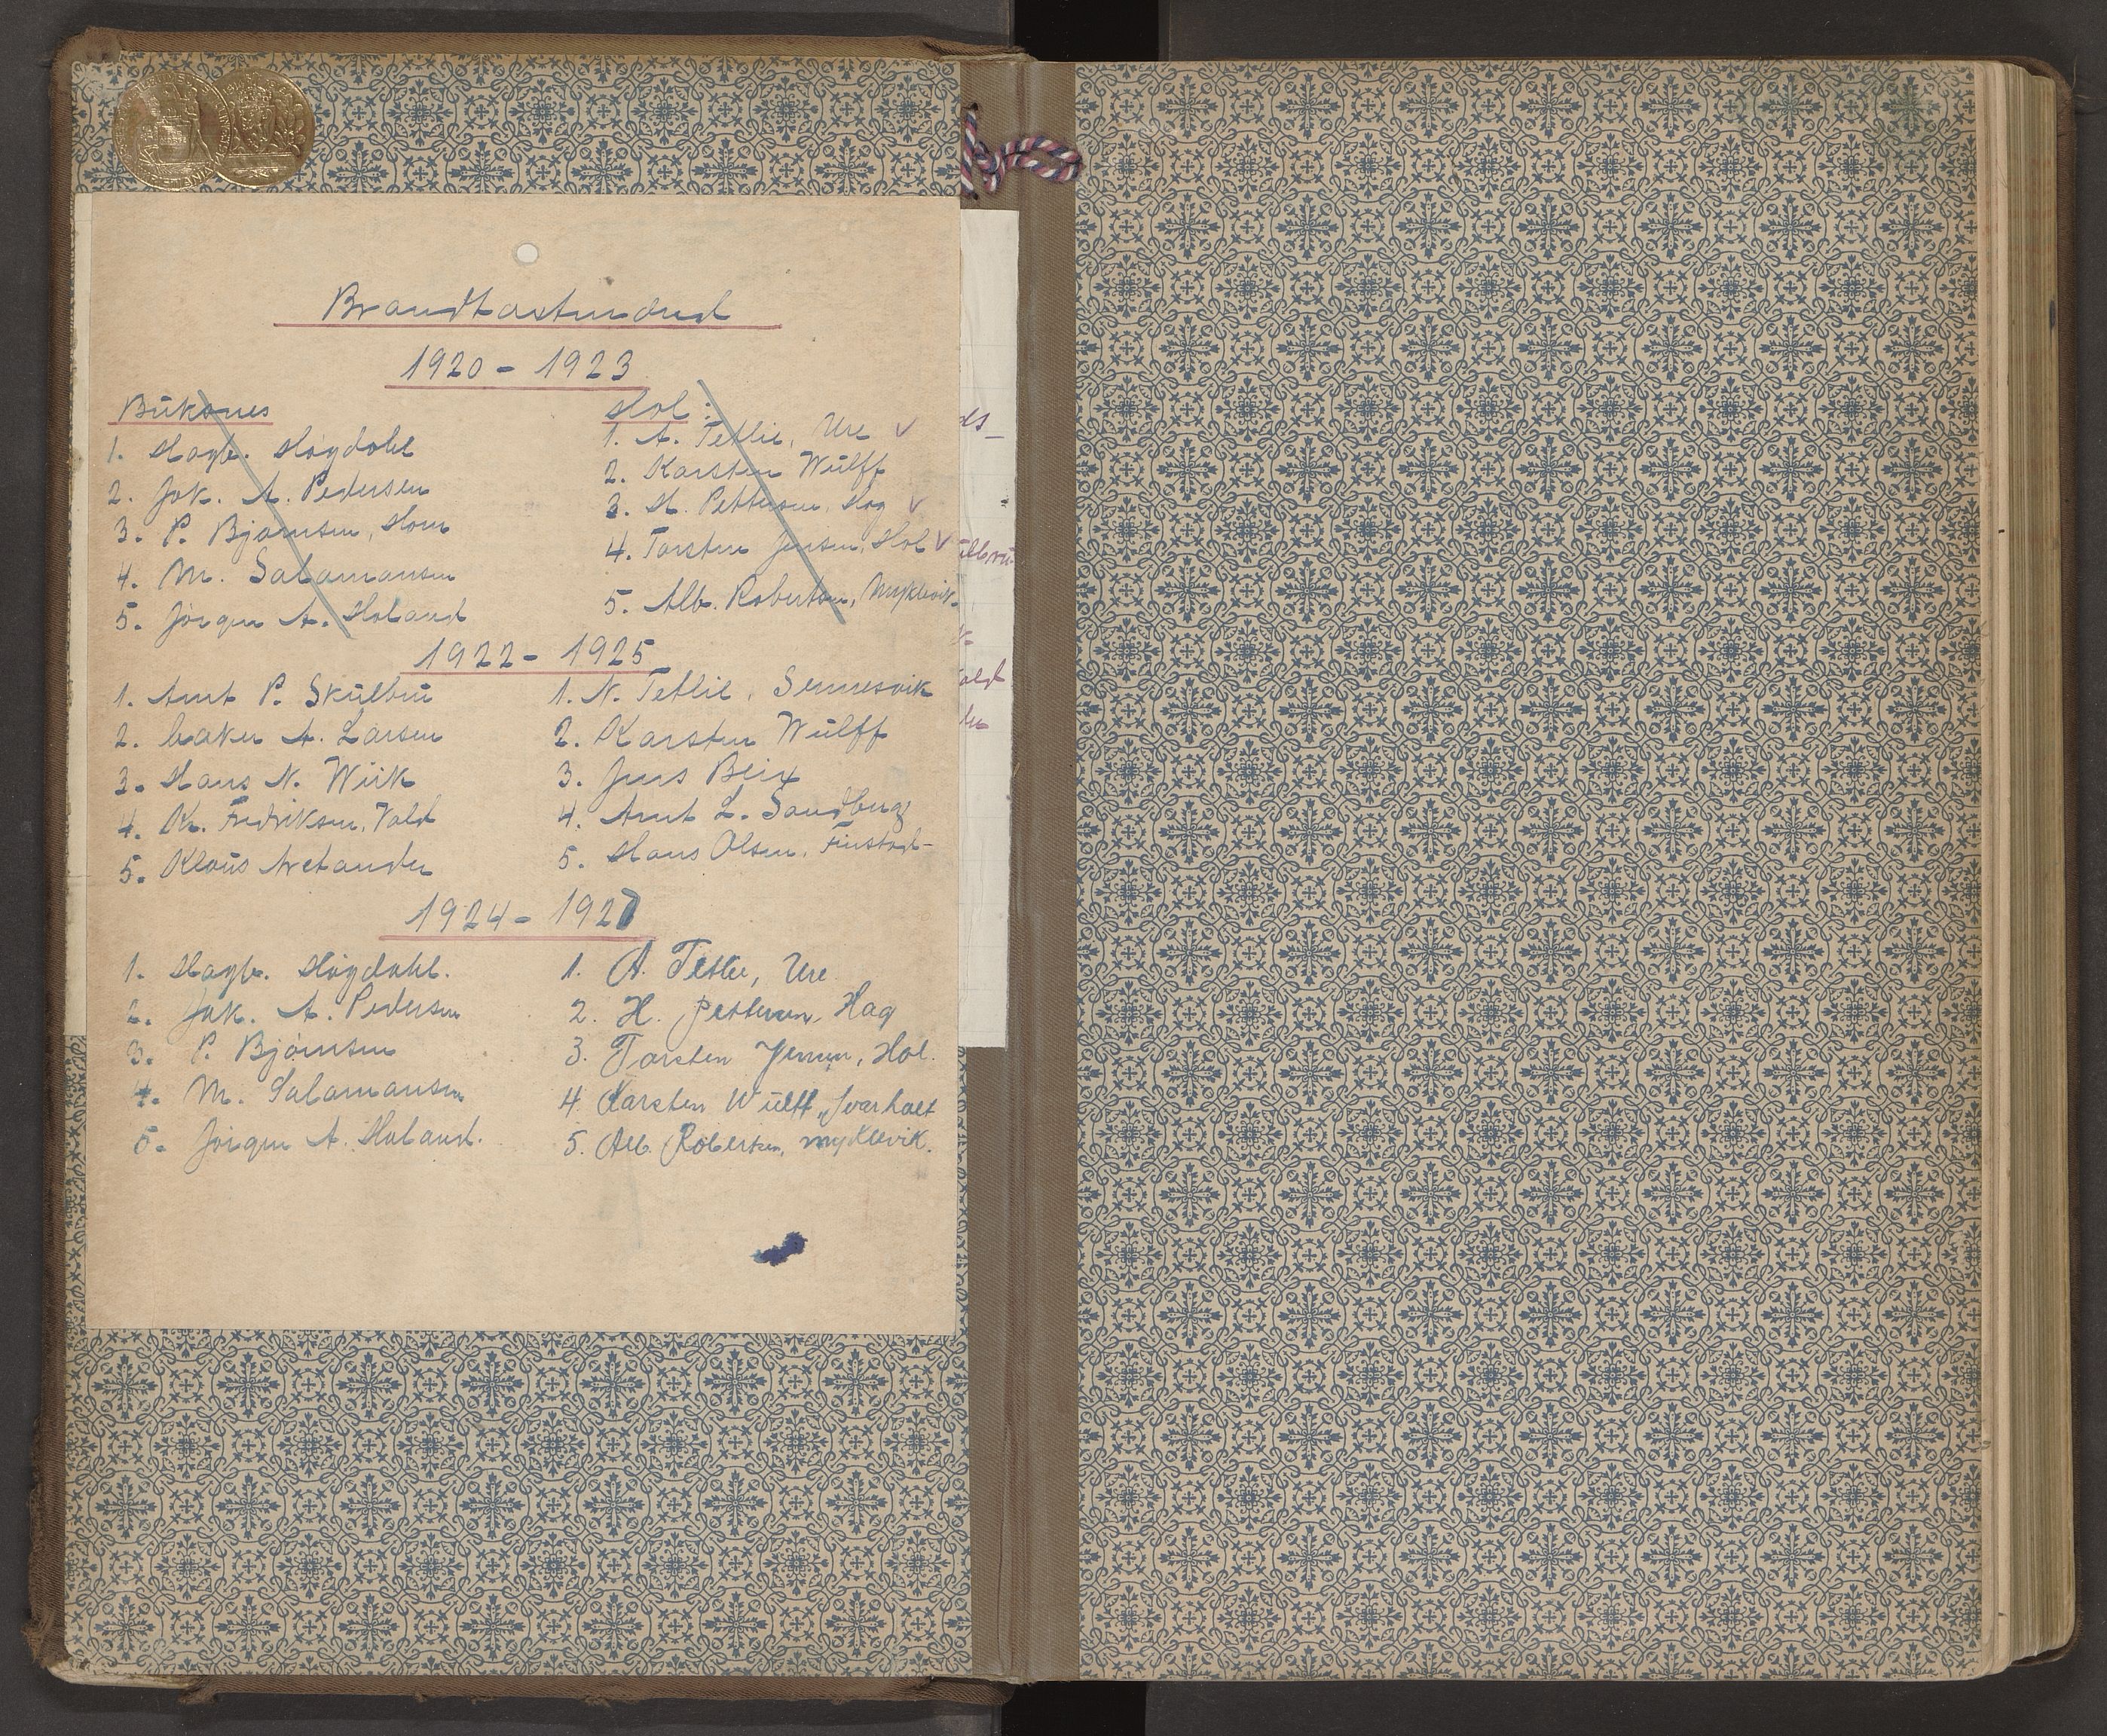 Brandtastmænd
1920 - 1923
Buksnes
1. Hagb. Høgdahl
2. Jak. A. Pedersen
3. P. Bjørnsen, Horn
4. M. Salamonsen
5. Jørgen A. Holand
Hol:
1. A. Tetlie, Ure v
2. Karsten Wulff
3. H. Pettersen, Hag v
4. Torsten Jensen, Hol v
5. Alb. Robertsen, Myklevik.
1922 - 1925
1. Arnt P. Skulbru
2. A. Larsen
3. Hans N. Wiik
4. K. Fredriksen, Vold
5. Klaus Aretander
1. N. Tetlie, Sennesvik
2. Karsten Wulff
3. Jens Beix
4. Arnt L. Sandberg
5. Hans Olsen, Finstad
1924 - 1927
1. Hagb. Høgdahl.
2. Jak. A. Pedersen
3. P. Bjørnsen
4. M. Salamonsen
5. Jørgen A. Holand.
1. A. Tetlie, Ure
2. H. Pettersen, Hag
3. Torsten Jensen, Hol.
4 Karsten Wulff,
5. Alb. Robertsen, Myklevik.